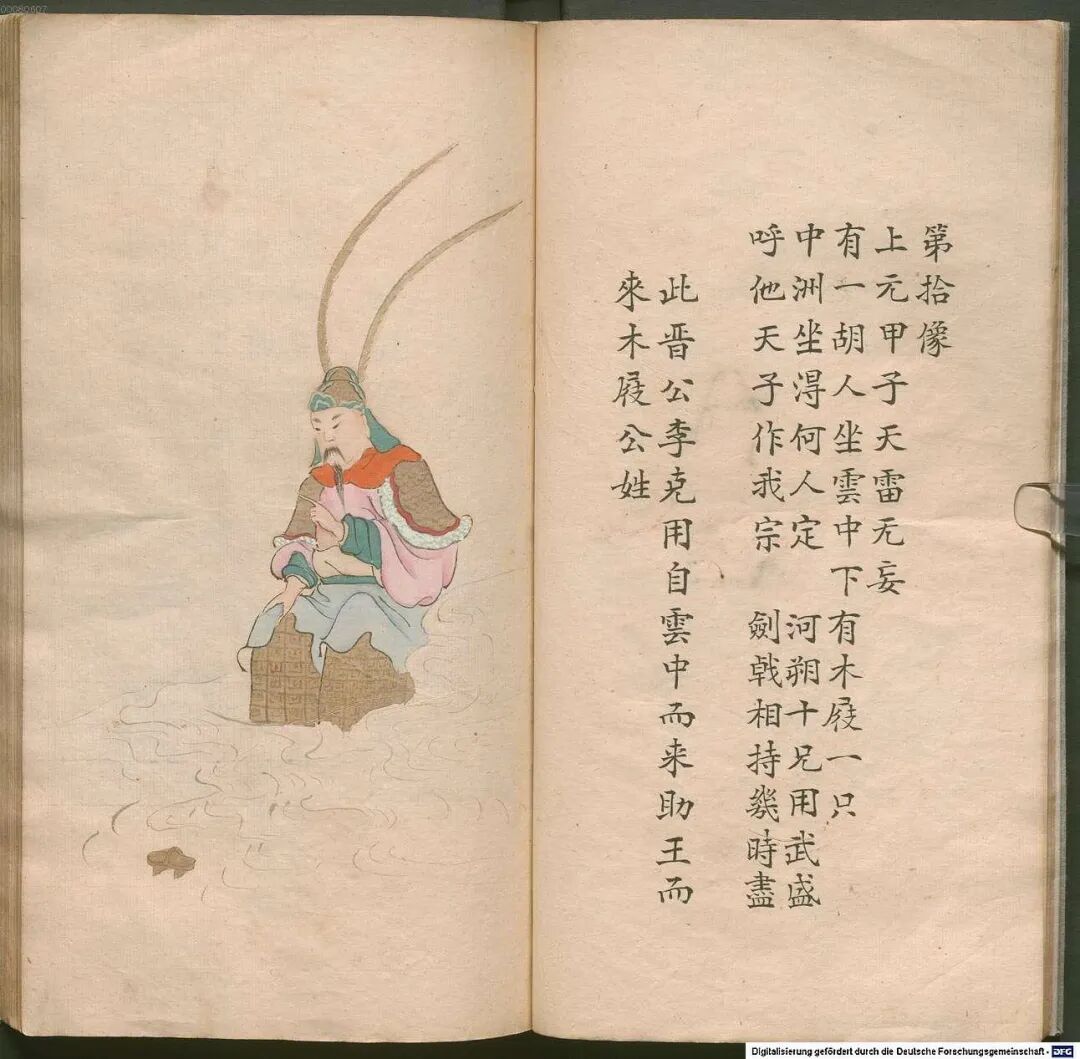 第拾像
上元甲子天雷无妄
有一胡人坐雲中下有木屐一只
中洲坐淂何人定　河朔十兄用武盛
呼他天子作我宗　劍戟相持幾時盡
此晋公李克用自雲中而来助王而
來木屐公姓
00080607
Digitalisierung gefördert durch die Deutsche Forschungsgemeinschaft - DFG